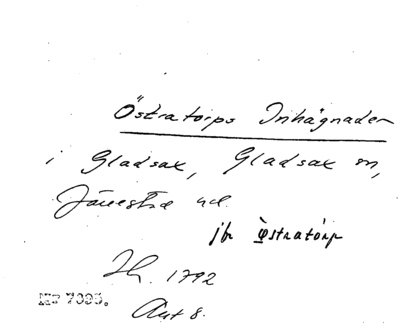 Östratorps Inhägnader
i Gladsax, Gladsax sn,
Järrestads hd.
jfr Östratorp
Lh. 1792
Akt 8.
Nr 7095.